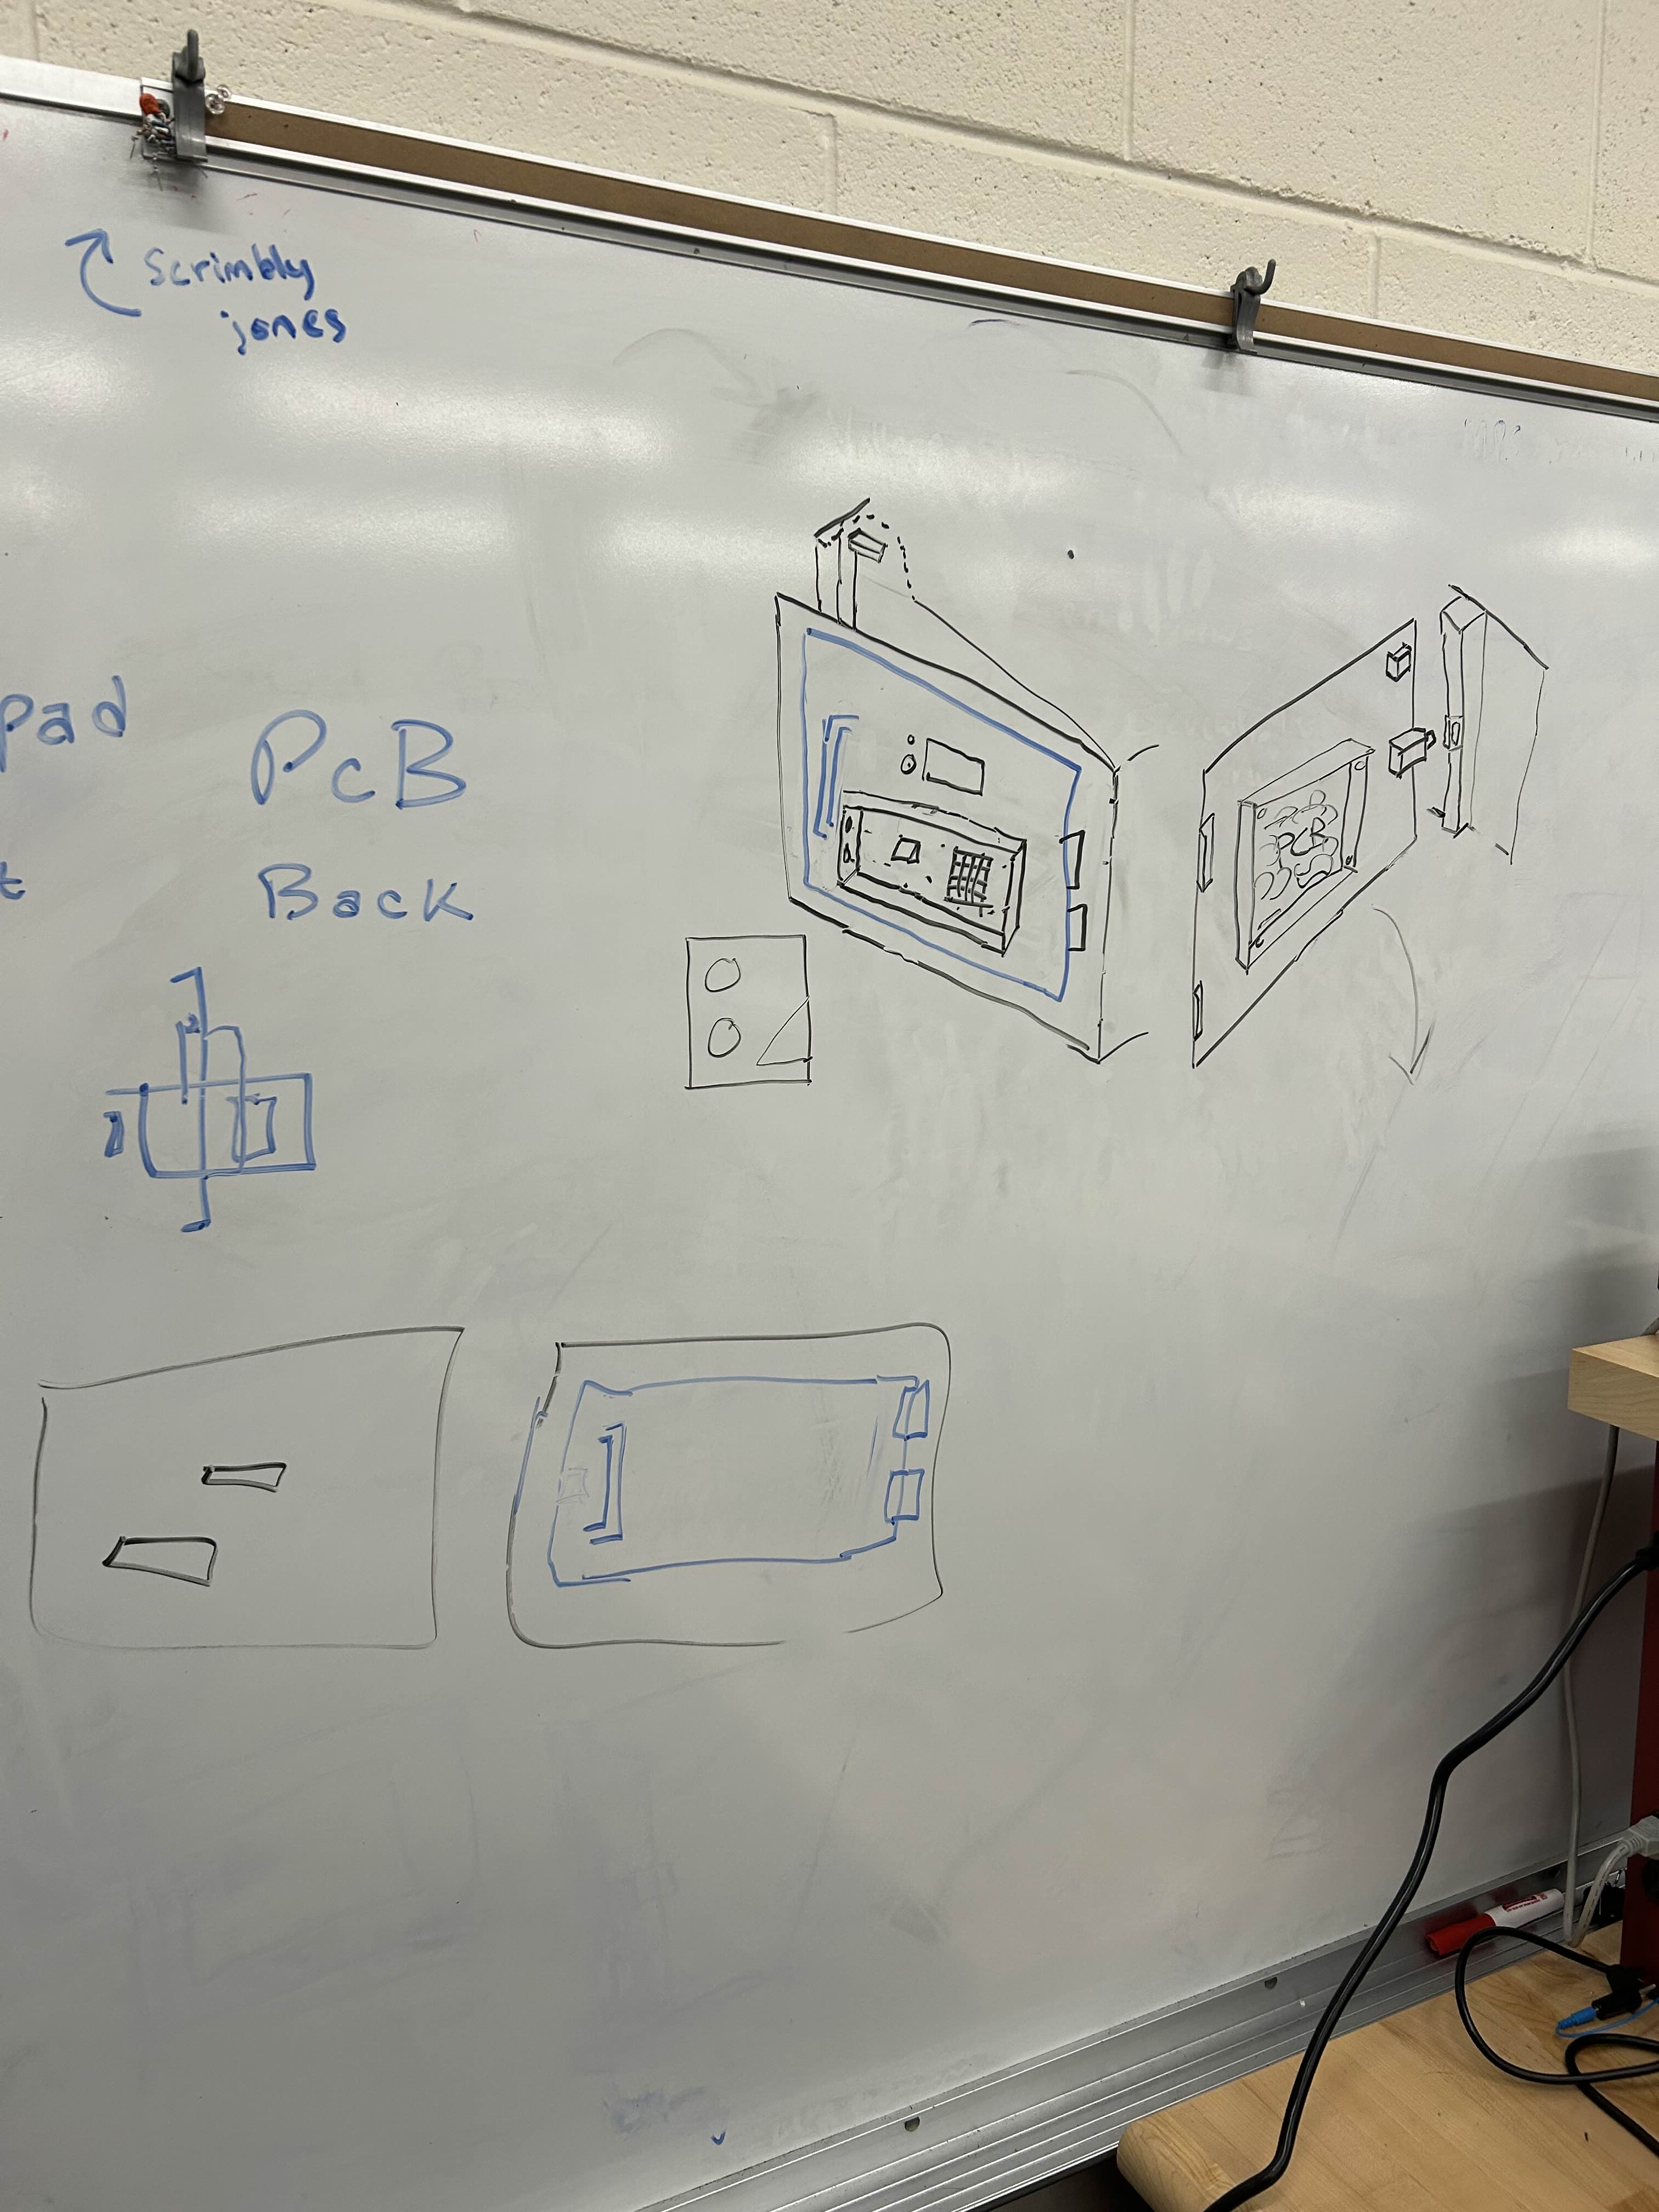 Scrimbly
jones
pad
PcB
t
Back
PCB